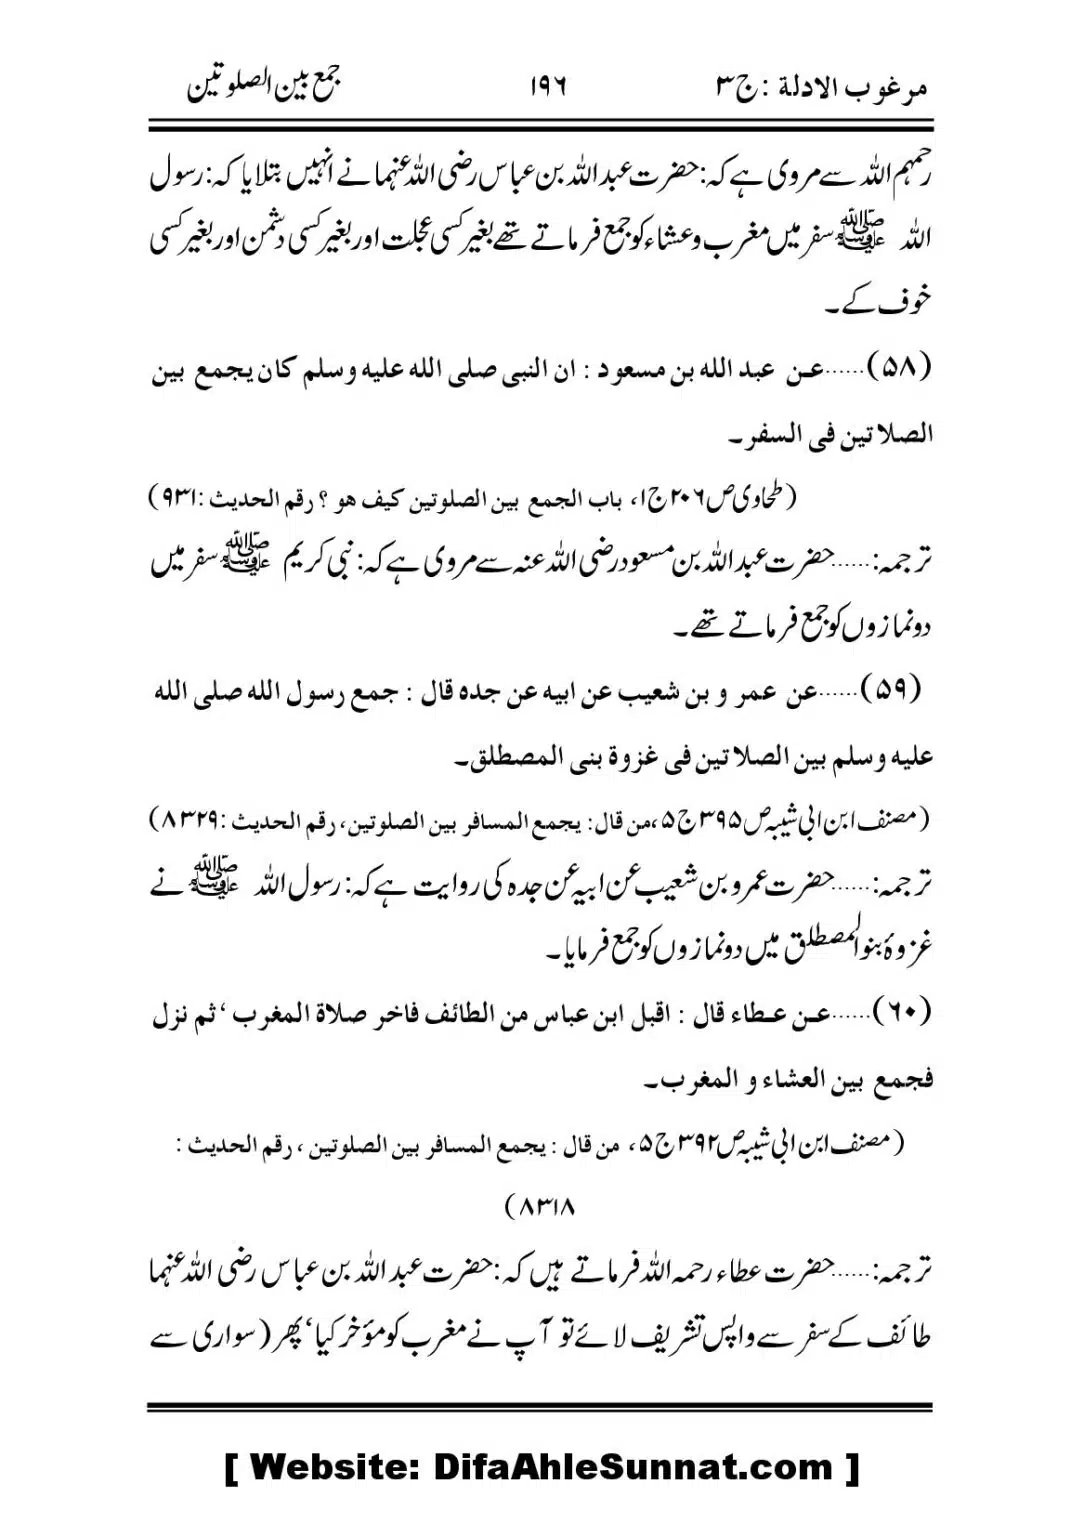 مرغوب الادلة : ج۳ ۱۹۶ جمع بین الصلوتین
رحمہم اللہ سے مروی ہے کہ: حضرت عبد اللہ بن عباس رضی اللہ عنہما نے انہیں بتلایا کہ: رسول
اللہ ﷺ سفر میں مغرب و عشاء کو جمع فرماتے تھے بغیر کسی عجلت اور بغیر کسی دشمن اور بغیر کسی
خوف کے۔
(۵۸)......عن عبد الله بن مسعود : ان النبی صلی الله علیه وسلم کان یجمع بین
الصلاتین فی السفر۔
(طحاوی ص۲۰۶ ج۱، باب الجمع بین الصلوتین کیف هو ؟ رقم الحدیث :۹۳۱)
ترجمہ:......حضرت عبد اللہ بن مسعود رضی اللہ عنہ سے مروی ہے کہ: نبی کریم ﷺ سفر میں
دو نمازوں کو جمع فرماتے تھے۔
(۵۹)......عن عمر و بن شعیب عن ابیه عن جده قال : جمع رسول الله صلی الله
علیه وسلم بین الصلاتین فی غزوة بنی المصطلق۔
(مصنف ابن ابی شیبہ ص۳۹۵ ج۵، من قال: یجمع المسافر بین الصلوتین، رقم الحدیث :۸۳۲۹)
ترجمہ:......حضرت عمرو بن شعیب عن ابیہ عن جدہ کی روایت ہے کہ: رسول اللہ ﷺ نے
غزوۂ بنو المصطلق میں دو نمازوں کو جمع فرمایا۔
(۶۰)......عن عطاء قال : اقبل ابن عباس من الطائف فاخر صلاة المغرب ‘ ثم نزل
فجمع بین العشاء و المغرب۔
(مصنف ابن ابی شیبہ ص۳۹۲ ج۵، من قال : یجمع المسافر بین الصلوتین ، رقم الحدیث :
۸۳۱۸)
ترجمہ:......حضرت عطاء رحمہ اللہ فرماتے ہیں کہ: حضرت عبد اللہ بن عباس رضی اللہ عنہما
طائف کے سفر سے واپس تشریف لائے تو آپ نے مغرب کو مؤخر کیا‘ پھر (سواری سے
[ Website: DifaAhleSunnat.com ]